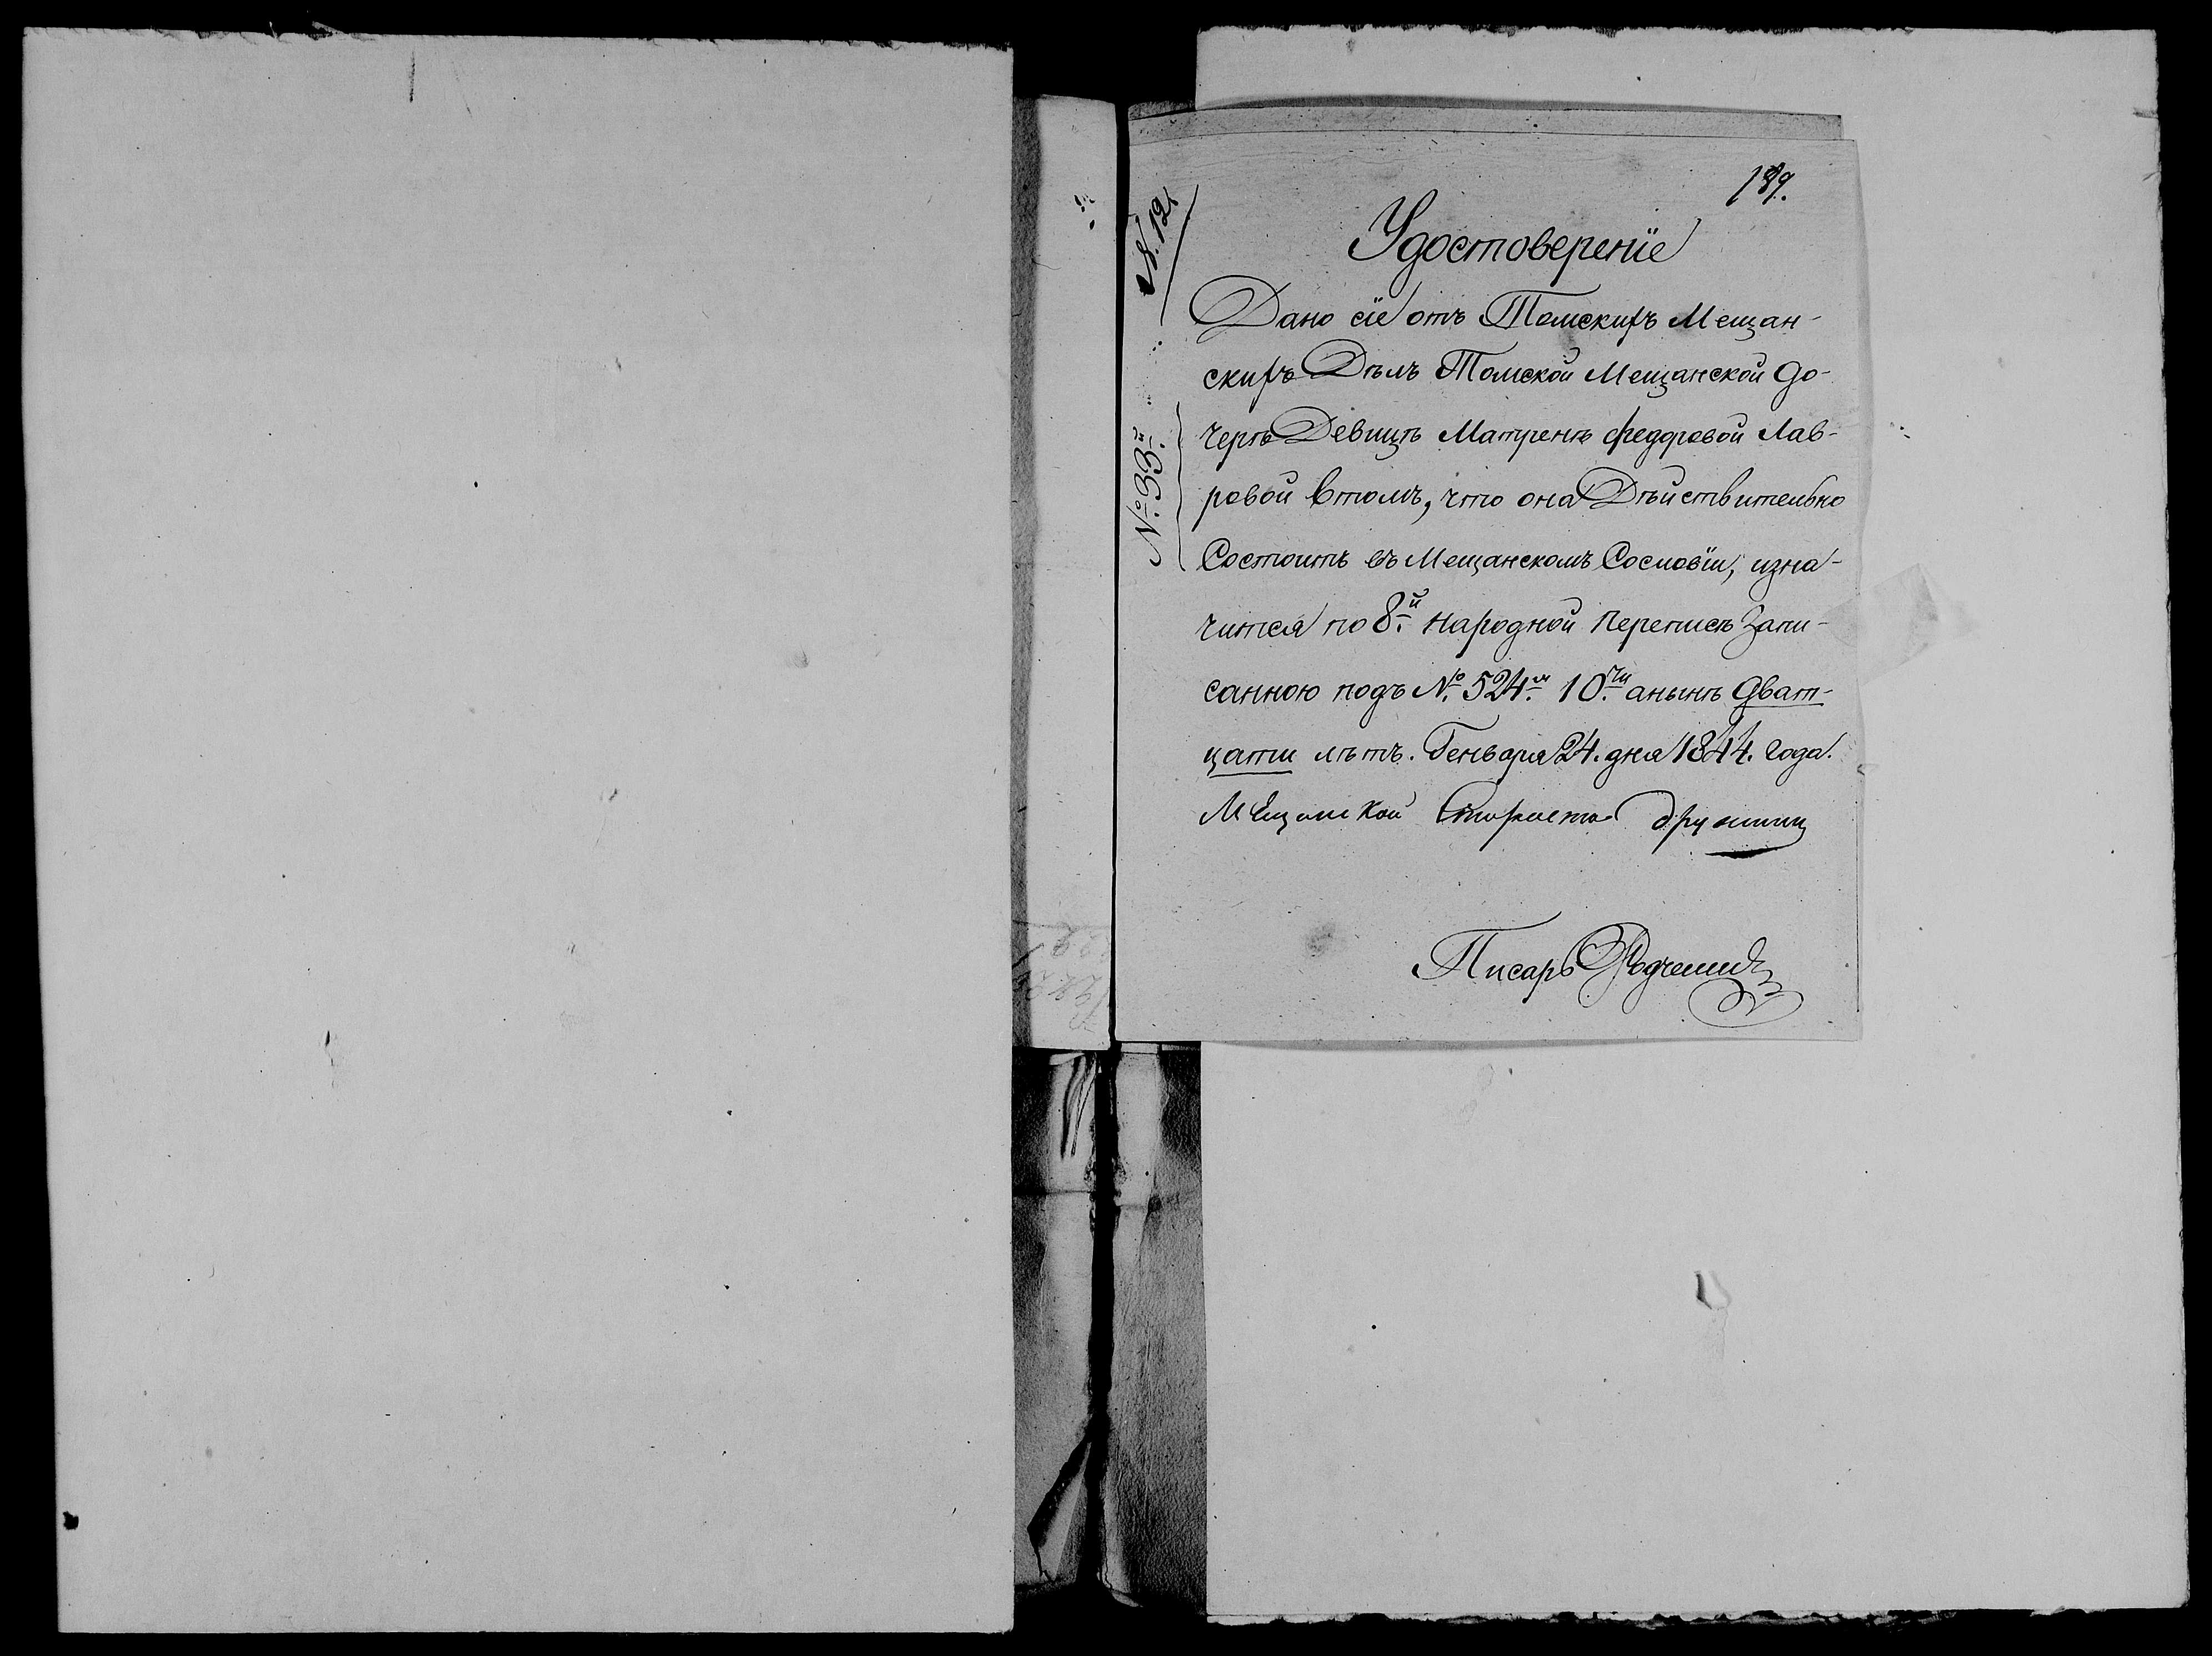 189.
N. 12.
№ 33й.
Удостоверенiе
Дано сiе отъ Томскихъ Мещан-
скихъ Дѣлъ Томской Мещанской до-
черѣ Девицѣ Матренѣ Федоровой Лав-
ровой втомъ, что она Дѣйствительно
Состоитъ въ Мещанскомъ Сословiи, изна-
чится по 8й. Народной Переписѣ Запи-
санною подъ № 524м. 10ти. анынѣ дват-
цати лѣтъ. Генваря 24. дня 1844. года.
Мещанской Староста
Писарь